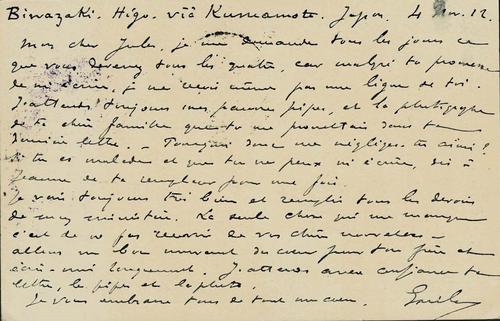 Biwazaki. Higo. viâ Kumamoto. Japon. 4 Nov. 12
Mon cher Jules, je me demande tous les jours ce
que vous devenez tous les quatre, car malgré ta promesse
de m'écrire, je ne reçois même pas une ligne de toi
J'attends toujours mes pauvres pipes, et la photographie
de ta chère famille que tu me promettais dans ta
dernière lettre. - Pourquoi donc me négliges-tu ainsi?
Si tu es malade et que tu ne peux m'écrire, dis à
Jeanne de te remplacer pour une fois.
Je vais toujours très bien et remplis tous les devoirs
de mon ministère. La seule chose qui me manque
c'est de ne pas recevoir de vos chères nouvelles -
allons un bon mouvement du cœur pour ton frère et
écris-moi longuement. J'attends avec confiance ta
lettre, les pipes et la photo.
Je vous embrasse tous de tout mon cœur. Emile